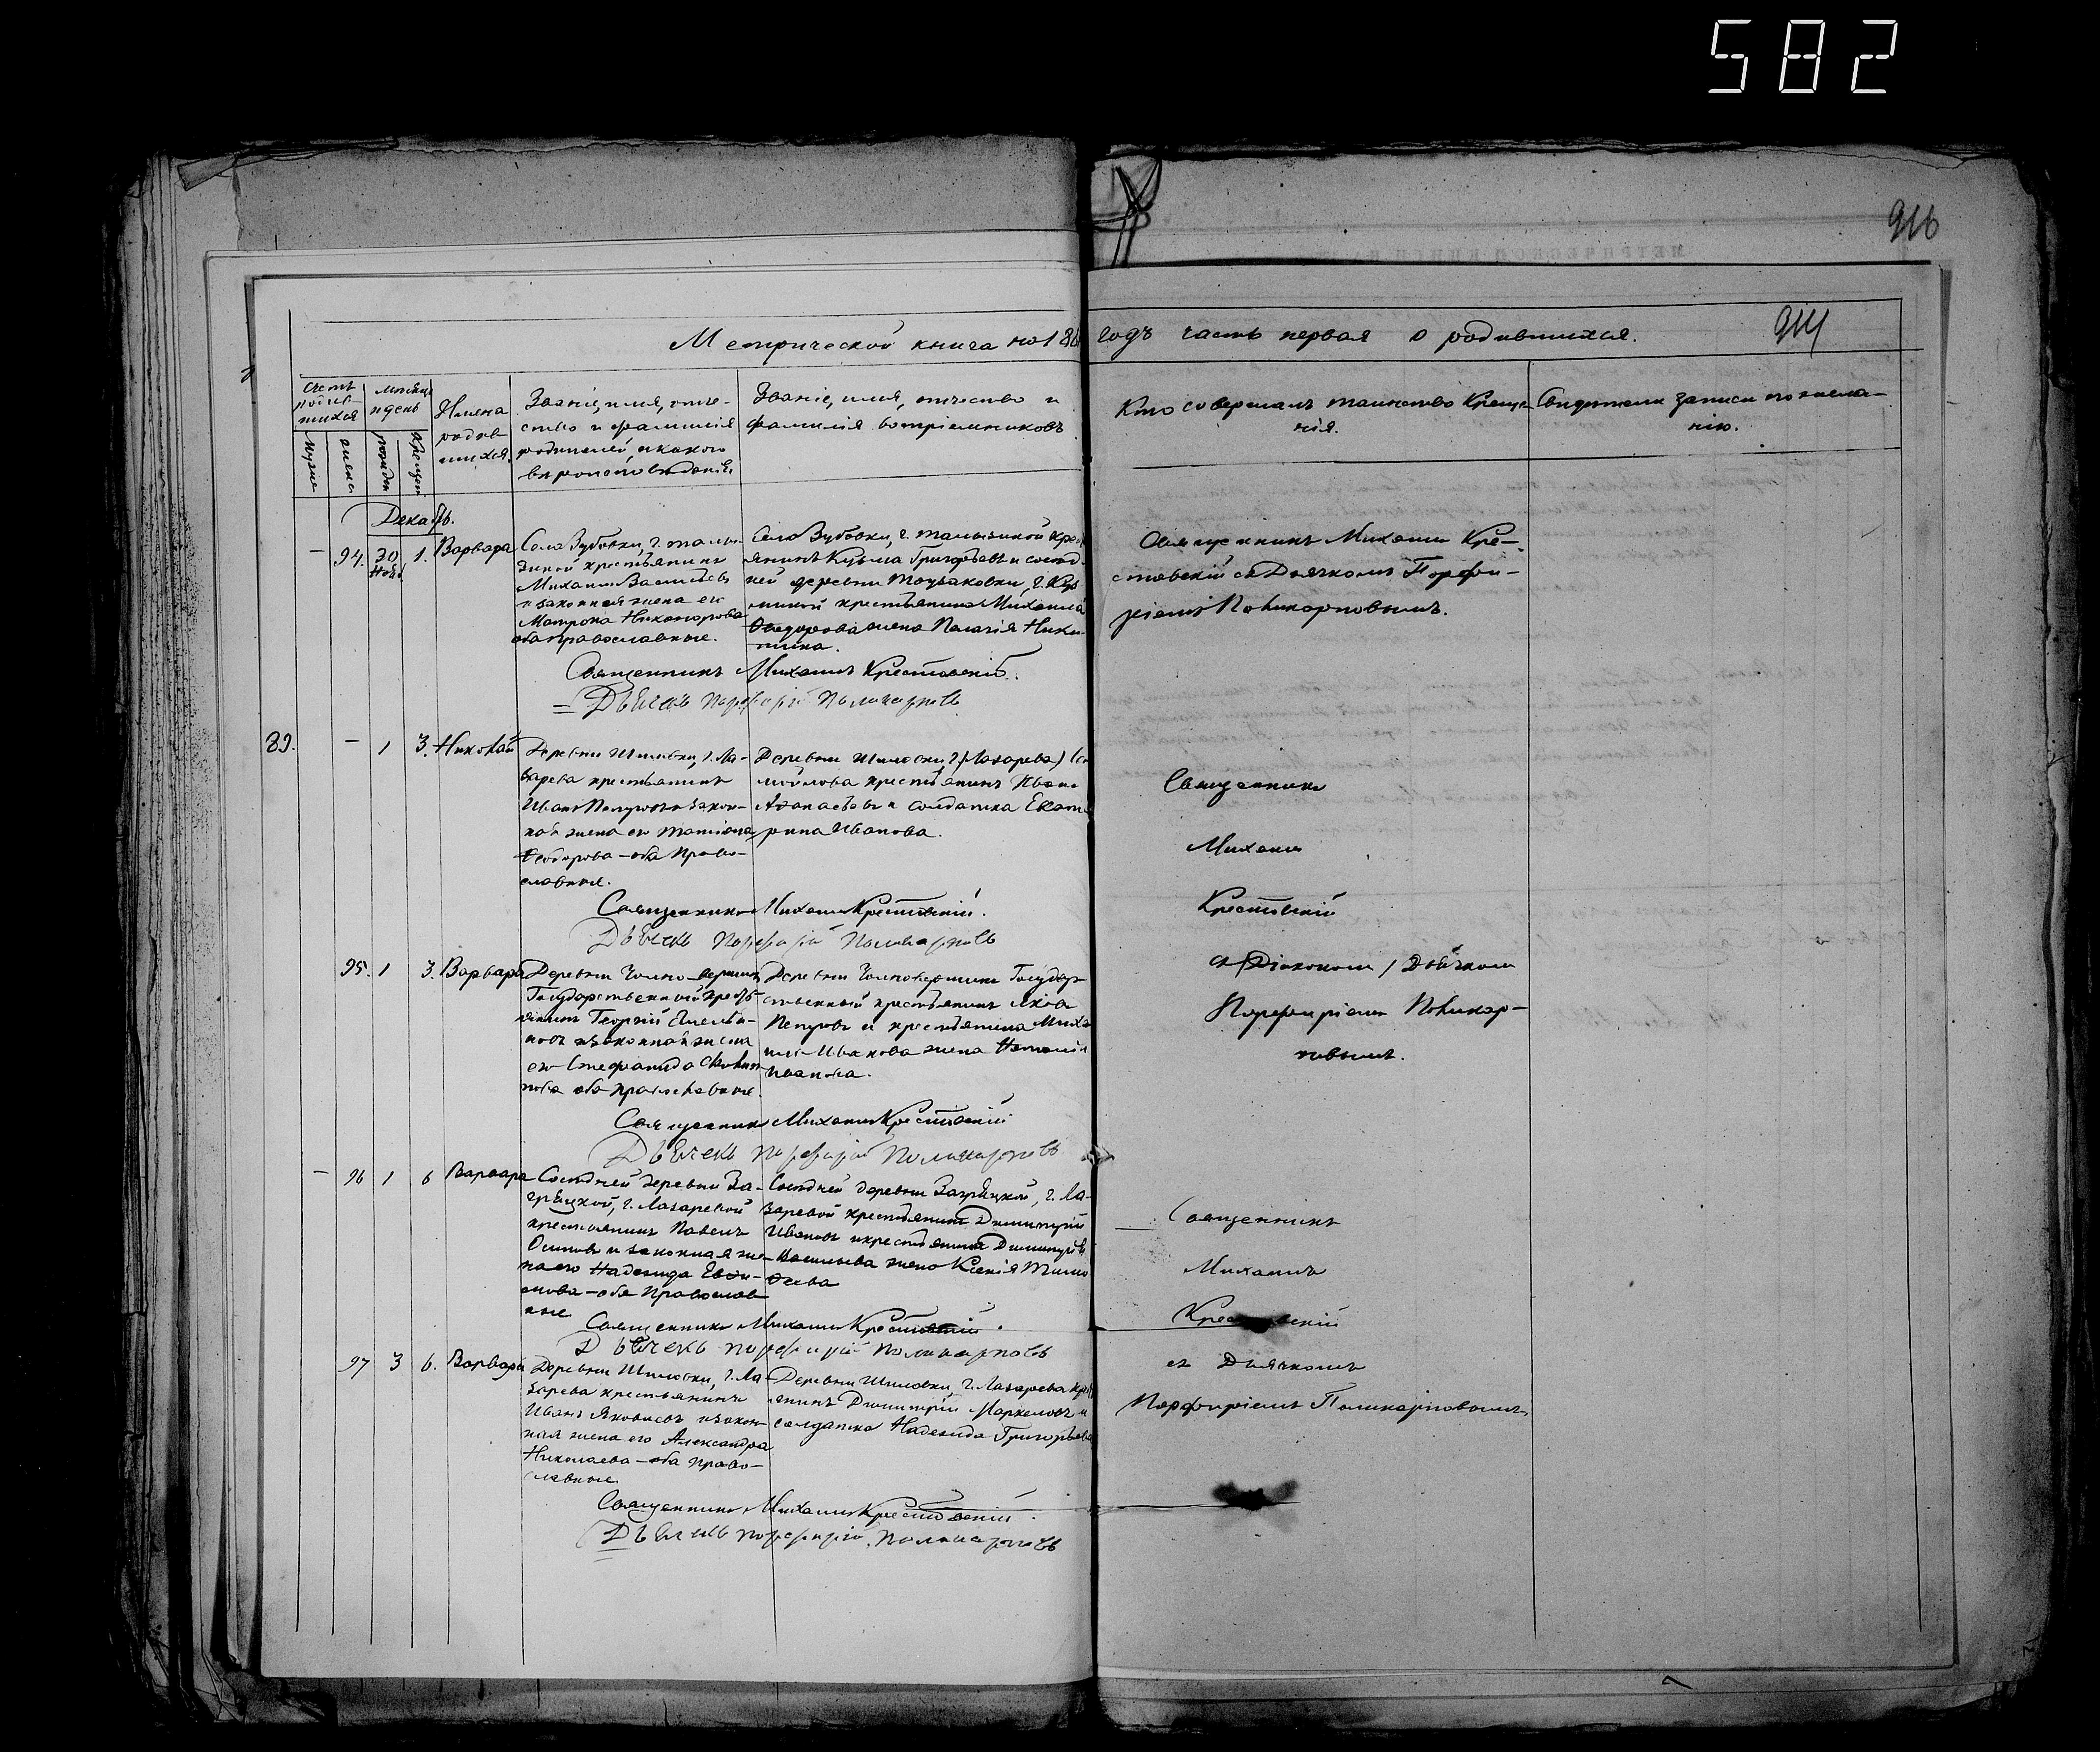 582
916
Метрической книга на 186
годъ часть первая о родившихся.
914
счетъ родив-шихся
мѣсяцъ и день
Имена родив-шихся.
Званіе, имя, отче-
ство и фамилія
родителей, и какого
вѣроисповѣданія.
Званіе, имя, отчество и
фамилія воспріемниковъ
Кто совершалъ таинство Креще-
нія.
Свидѣтели записи по жела-
нію.
мужес
женска
рожден
крещен
Декабрь.
— 94. 30 Нояб 1. Варвара
Села Зубовки, г. Талы-
зиной крестьянинъ
Михаилъ Васильевъ
и законная жена его
Матрона Никанорова
оба православные.
Села Зубовки, г. Талызиной крес
янинъ Кузьма Григорьевъ и сосѣд-
ней деревни
крестьянина Михаила
Ѳеодорова жена Пелагія Ники-
тина.
Священникъ Михаилъ Крестовскій.
Дьячекъ Порфирій Поликарповъ
Священникъ Михаилъ Кре-
стовскій съ Дьячкомъ Порфи-
ріемъ Поликарповымъ.
89. — 1 3. Николай
Деревни Шиловки, г. Ла-
зарева крестьянинъ
Иванъ Петровъ и закон-
ная жена его Татіана
Ѳеодорова — оба Право-
славные.
Деревни Шиловки, г. (Лазарева)
крестьянинъ Иванъ
Аѳанасьевъ и солдатка Екате
рина Иванова.
Священникъ Михаилъ Крестовскій.
Дьячекъ Порфирій Поликарповъ
Священникъ
Михаилъ
Крестовскій
съ Діакономъ / Дьячкомъ
Порфиріемъ Поликар-
повымъ.
95. 1 3. Варвара
Деревни Чолно-вершинъ
Государственный кресть
янинъ Георгій Емелья-
новъ и законная жена
его Стефанида
оба Православные.
Деревни Государ-
ственный крестьянинъ Яковъ
Петровъ и крестьянина Миха
ила Иванова жена Наталія
Иванова.
Священникъ Михаилъ Крестовскій
Дьячекъ Порфирій Поликарповъ
— 96 1 6 Варвара
Сосѣдней деревни За-
грѣцкой, г. Лазаревой
крестьянинъ Павелъ
Осиповъ и законная же-
на его Надежда Евѳи-
мова — оба Православ
ные
Сосѣдней деревни Загрѣцкой, г. Ла-
заревой крестьянинъ Димитрій
Ивановъ и крестьянина Димитрія
Васильева жена Ксенія Тимо
ѳеева
Священникъ Михаилъ Крестовскій.
Дьячекъ Порфирій Поликарповъ
Священникъ
Михаилъ
Крестовскій
съ Дьячкомъ
Порфиріемъ Поликарповымъ
97 3 6. Варвара
Деревни Шиловки, г. Ла-
зарева крестьянинъ
Иванъ Яковлевъ и закон-
ная жена его Александра
Николаева — оба Право-
славные.
Деревни Шиловки, г. Лазарева крест
янинъ Димитрій Маркеловъ и
солдатка Надежда Григорьева
Священникъ Михаилъ Крестовскій.
Дьячекъ Порфирій Поликарповъ